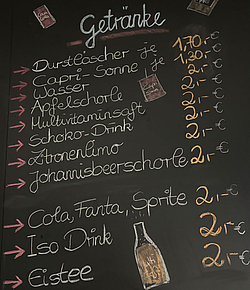 Getränke
Durstlöscher je 1,70.-€
Capri-Sonne je 1,30.-€
Wasser 2,-€
Apfelschorle 2,-€
Multivitaminsaft 2,-€
Schoko-Drink 2,-€
Zitronenlimo 2,-€
Johannisbeerschorle 2,-€
Cola, Fanta, Sprite 2,-€
Iso Drink 2,-€
Eistee 2,-€